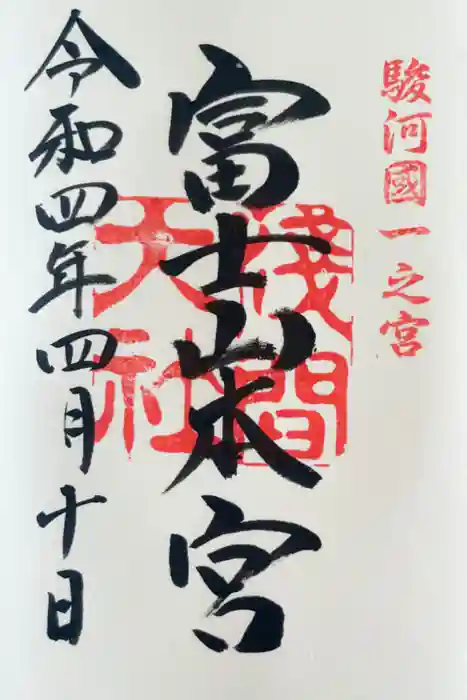 駿河國一之宮
富士山本宮
淺間大社
令和四年四月十日